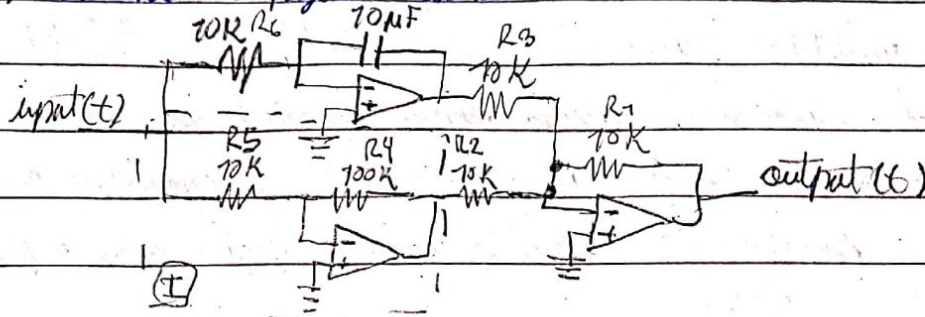 10K R6
10µF
R3
10K
input(t)
R5
10K
R4
100K
R2
10K
R1
10K
output(t)
-
+
-
+
-
+
I